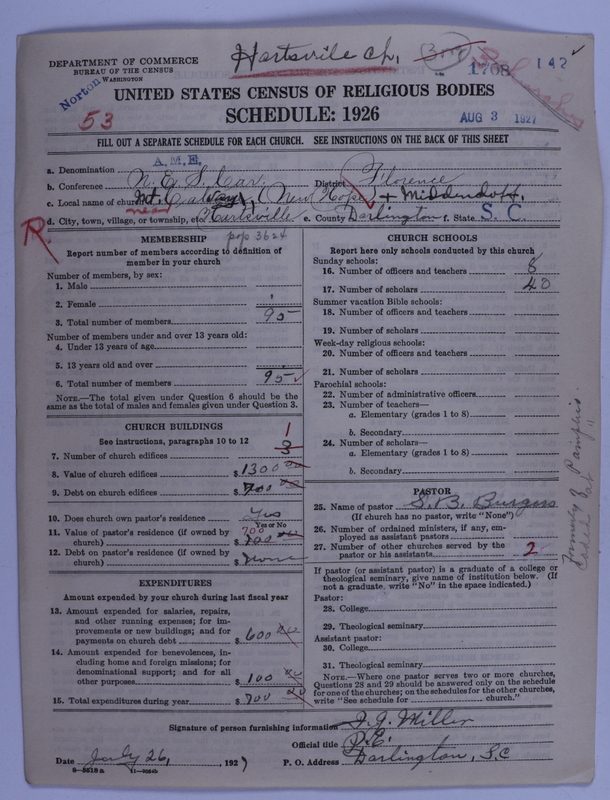 Hartsville ch.
1768
142
DEPARTMENT OF COMMERCE
BUREAU OF THE CENSUS
WASHINGTON
Norton
53
UNITED STATES CENSUS OF RELIGIOUS BODIES
SCHEDULE: 1926
AUG 3 1927
FILL OUT A SEPARATE SCHEDULE FOR EACH CHURCH. SEE INSTRUCTIONS ON THE BACK OF THIS SHEET
a. Denomination A.M.E.
b. Conference N. E. S. Car. District Florence
c. Local name of church Mt. New Hope + Middendorf.
d. City, town, village, or township, etc near Hartsville e. County Darlington f. State S. C.
R
pop 3624
MEMBERSHIP
Report number of members according to definition of
member in your church
Number of members, by sex:
1. Male
2. Female
3. Total number of members 95
Number of members under and over 13 years old:
4. Under 13 years of age
5. 13 years old and over
6. Total number of members 95
NOTE.—The total given under Question 6 should be the
same as the total of males and females given under Question 3.
CHURCH BUILDINGS
See instructions, paragraphs 10 to 12 1
7. Number of church edifices 3
8. Value of church edifices $1300 00
9. Debt on church edifices $ 700 00
10. Does church own pastor's residence Yes
Yes or No
11. Value of pastor's residence (if owned by 700
church) $ 700 00
12. Debt on pastor's residence (if owned by
church) $ none
EXPENDITURES
Amount expended by your church during last fiscal year
13. Amount expended for salaries, repairs,
and other running expenses; for im-
provements or new buildings; and for
payments on church debt $ 600 00
14. Amount expended for benevolences, in-
cluding home and foreign missions; for
denominational support; and for all
other purposes $ 100 00
15. Total expenditures during year $ 700 00
CHURCH SCHOOLS
Report here only schools conducted by this church
Sunday schools:
16. Number of officers and teachers 8
17. Number of scholars 40
Summer vacation Bible schools:
18. Number of officers and teachers
19. Number of scholars
Week-day religious schools:
20. Number of officers and teachers
21. Number of scholars
Parochial schools:
22. Number of administrative officers
23. Number of teachers—
a. Elementary (grades 1 to 8)
b. Secondary
24. Number of scholars—
a. Elementary (grades 1 to 8)
b. Secondary
PASTOR
25. Name of pastor S. B. Burgess
(If church has no pastor, write "None")
26. Number of ordained ministers, if any, em-
ployed as assistant pastors
27. Number of other churches served by the
pastor or his assistants 2
If pastor (or assistant pastor) is a graduate of a college or
theological seminary, give name of institution below. (If
not a graduate, write "No" in the space indicated.)
Pastor:
28. College
29. Theological seminary
Assistant pastor:
30. College
31. Theological seminary
NOTE.—Where one pastor serves two or more churches,
Questions 28 and 29 should be answered only on the schedule
for one of the churches; on the schedules for the other churches,
write "See schedule for church."
Signature of person furnishing information J. J. Miller
Official title P. E.
Date July 26, 1927 P. O. Address Darlington, S.C
8-5818a 11-9564b